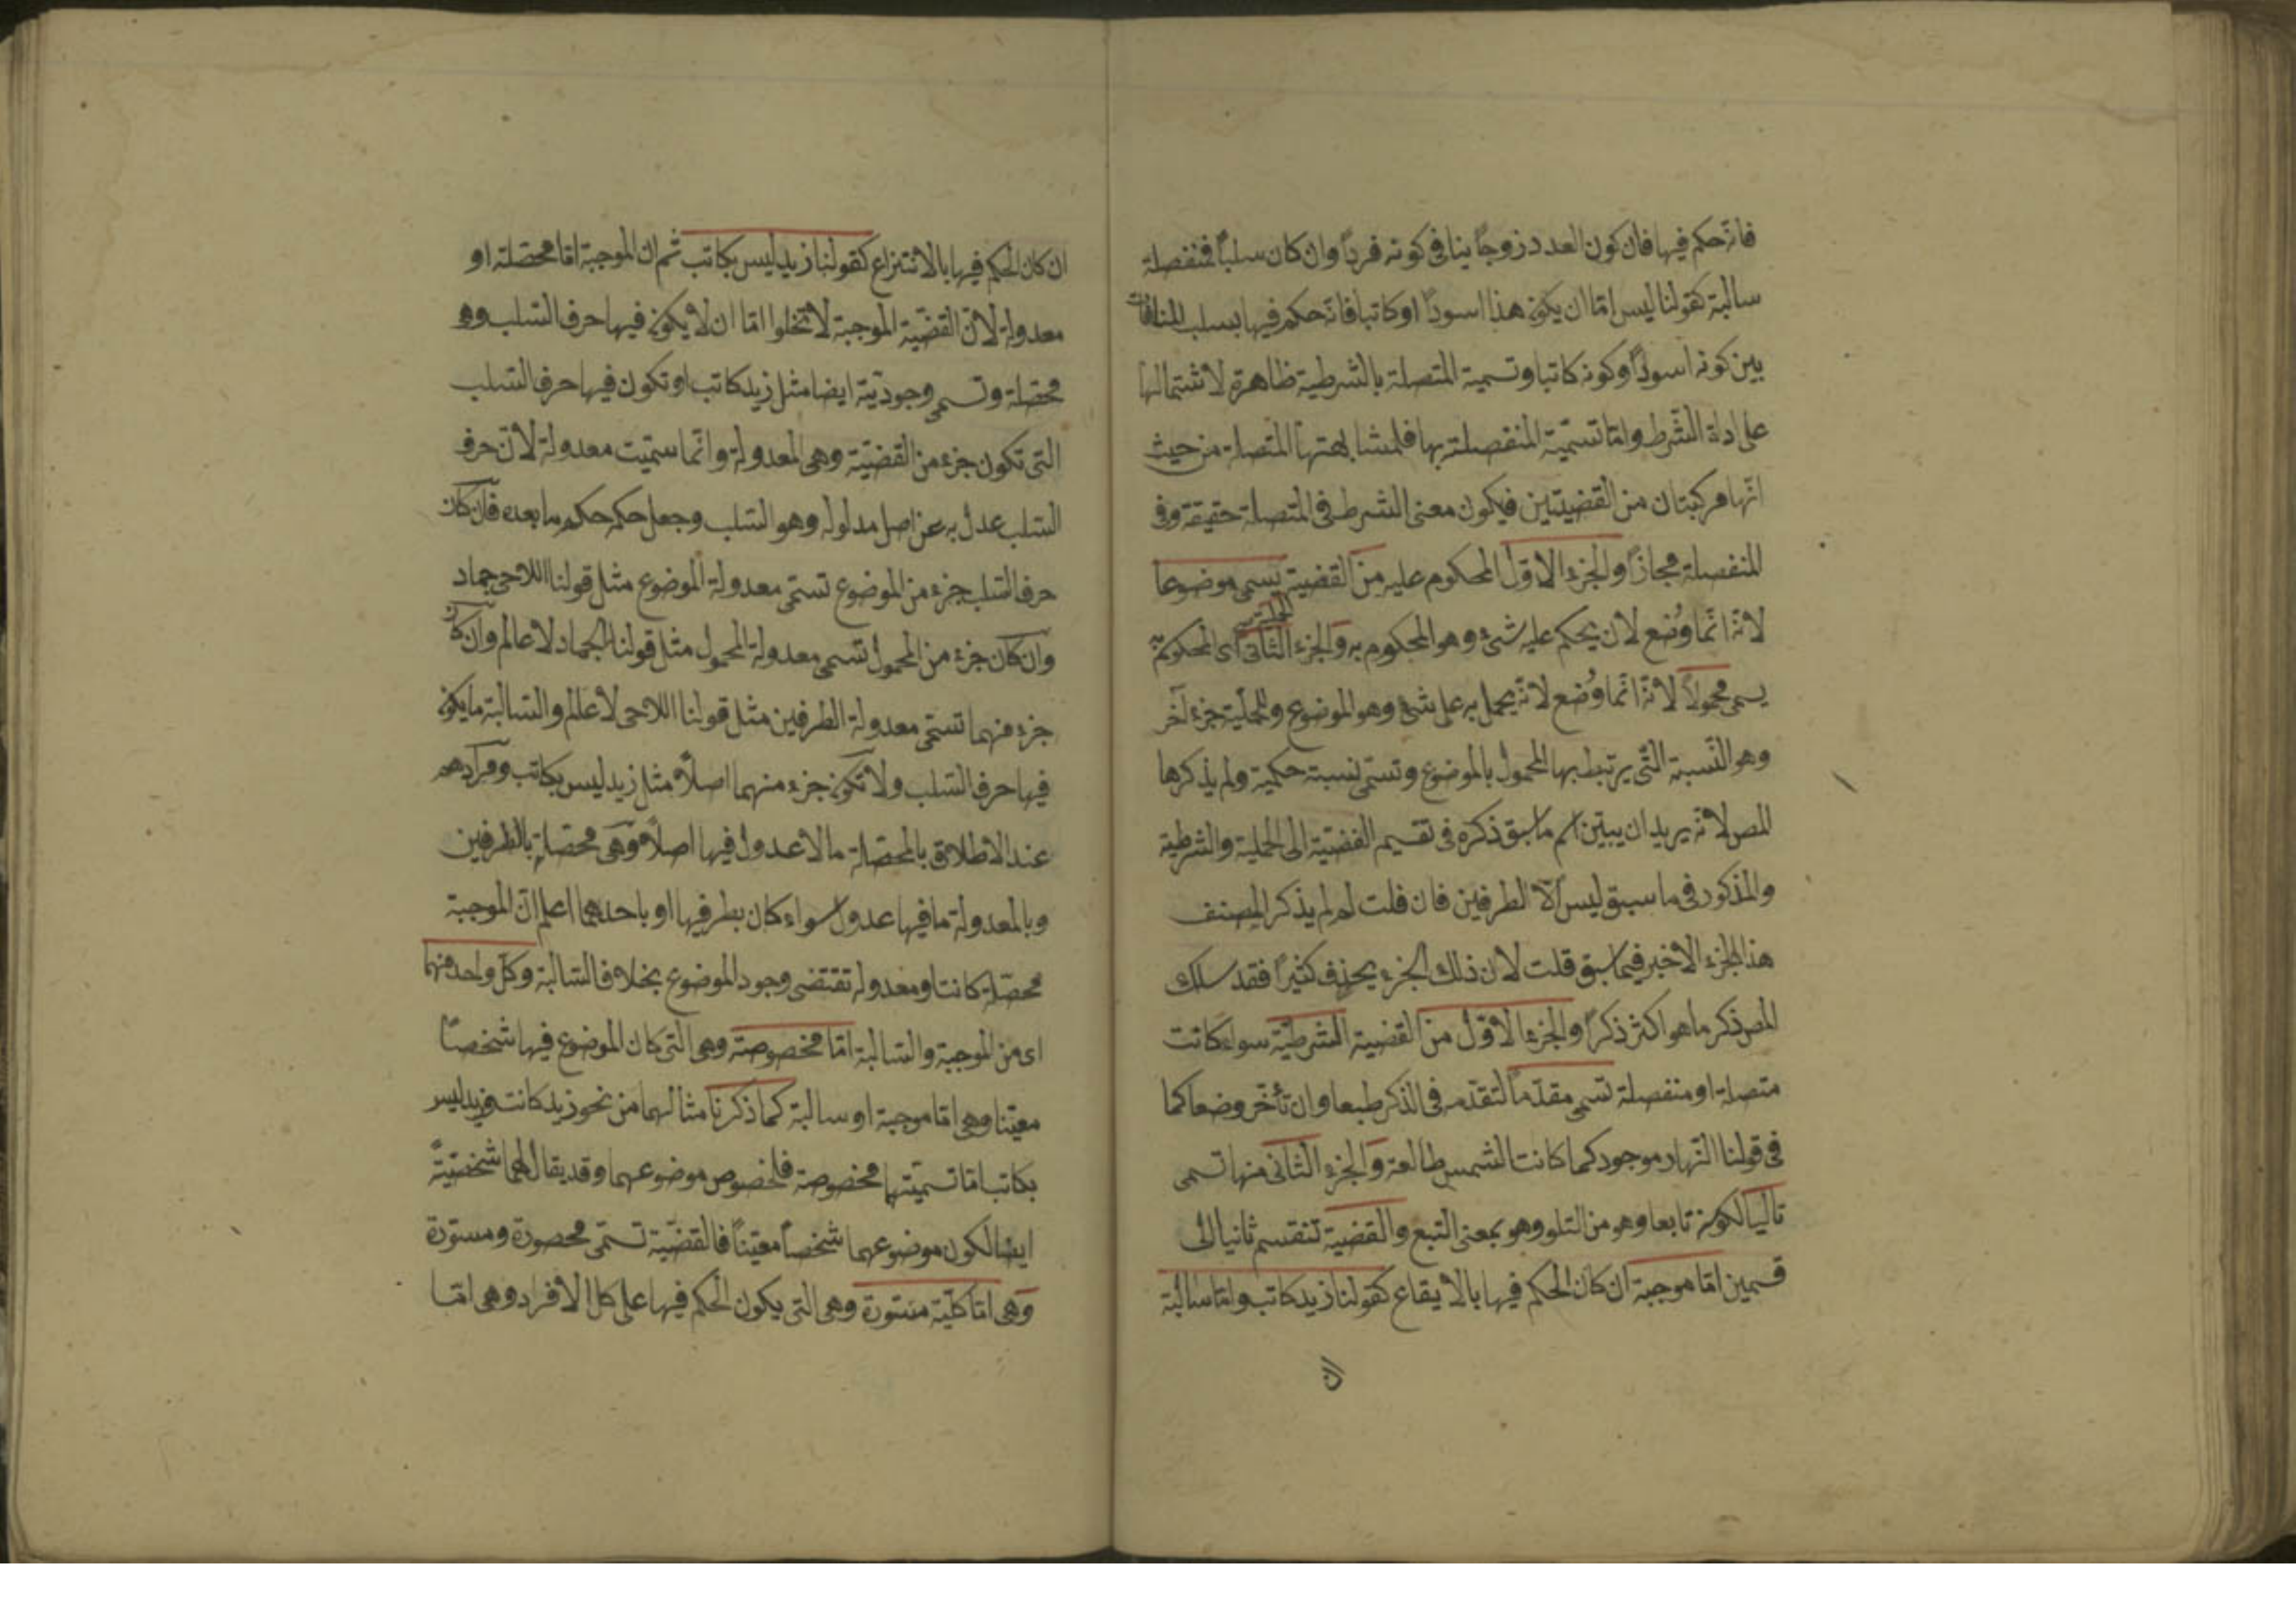 فانه حكم فيها فان كون العدد زوجاً ينافى كونه فرداً وان كان سلباً فمنفصلة
سالبة كقولنا ليس امّا ان يكون هذا اسوداً او كاتبا فانه حكم فيها بسلب المنافات
بين كونه اسوداً وكونه كاتبا وتسمية المتصلة بالشرطية ظاهرة لاشتمالها
على اداة الشرط وامّا تسمّية المنفصلة بها فلمشابهتها المتصلة من حيث
انّها مركبتان من القضيتين فيكون معنى الشرط فى المتصلة حقيقة وفى
المنفصلة مجازاً والجزء الاوّل المحكوم عليه من القضية يسمى موضوعا
لانّه انّما وُضع لان يحكم عليه شئ وهو المحكوم به والجزء الثانى اى المحكوم به
يسمى محمولاً لانّه انّما وُضع لانّه يحمل به على شئ وهو الموضوع وللحملية جزء آخر
وهو النّسبة التّى يرتبط بها المحمول بالموضوع وتسمّى نسبة حكمية ولم يذكرها
المص لانّه يريد ان يبيّن اسم ما سبق ذكره فى تقسيم القضيّة الى الحملية والشرطية
والمذكور فى ما سبق ليس الّا الطرفين فان قلت لم لم يذكر المصنف
هذا الجزء الاخير فيما سبق قلت لان ذلك الجزء يحذف كثيراً فقد سلك
المص ذكر ما هو اكثر ذكراً والجزء الاوّل من القضية الشرطيّة سواء كانت
متصلة او منفصلة تسمى مقدّماً لتقدّمه فى الذكر طبعا وان تأخّر وضعا كما
فى قولنا النّهار موجود كما كانت الشمس طالعة والجزء الثّانى منها تسمى
تاليا لكونه تابعا وهو من التلو وهو بمعنى التبع والقضية تنقسم ثانيا الى
قسمين امّا موجبة ان كان الحكم فيها بالايقاع كقولنا زيد كاتب وامّا سالبة
ان كان الحكم فيها بالانتزاع كقولنا زيد ليس بكاتب ثم ان الموجبة امّا محصّلة او
معدولة لانّ القضيّة الموجبة لا تخلوا امّا ان لا يكون فيها حرف السّلب وهى
محصّلة وتسمى وجوديّة ايضا مثل زيد كاتب او تكون فيها حرف السّلب
التى تكون جزء من القضيّة وهى المعدولة وانّما سمّيت معدولة لانّ حرف
السّلب عدل به عن اصل مدلوله وهو السّلب وجعل حكمه حكم ما بعده فان كان
حرف السّلب جزء من الموضوع تسمّى معدولة الموضوع مثل قولنا اللاحى جماد
وان كان جزء من المحمول تسمى معدولة المحمول مثل قولنا الجماد لا عالم وان كان
جزء منهما تسمّى معدولة الطرفين مثل قولنا اللاحى لا عالم والسّالبة ما يكون
فيها حرف السّلب ولا تكون جزء منهما اصلاً مثل زيد ليس بكاتب ومرادهم
عند الاطلاق بالمحصّلة ما لا عدول فيها اصلاً وهى محصّلة بالطرفين
وبالمعدولة ما فيها عدول سواء كان بطرفيها او باحدهما اعلم انّ الموجبة
محصّلة كانت او معدولة تقتضى وجود الموضوع بخلاف السّالبة وكل واحد منهما
اى من الموجبة والسّالبة امّا مخصوصة وهى التى كان الموضوع فيها شخصاً
معيّنا وهى امّا موجبة او سالبة كما ذكرنا مثالهما من نحو زيد كاتب وزيد ليس
بكاتب امّا تسميّتها مخصوصة فلخصوص موضوعهما وقد يقال لهما شخصيّةً
ايضا لكون موضوعهما شخصاً معيّناً فالقضيّة تسمّى محصورة ومسوّرة
وهى امّا كلّيّة مسوّرة وهى التى يكون الحكم فيها على كل الافراد وهى امّا